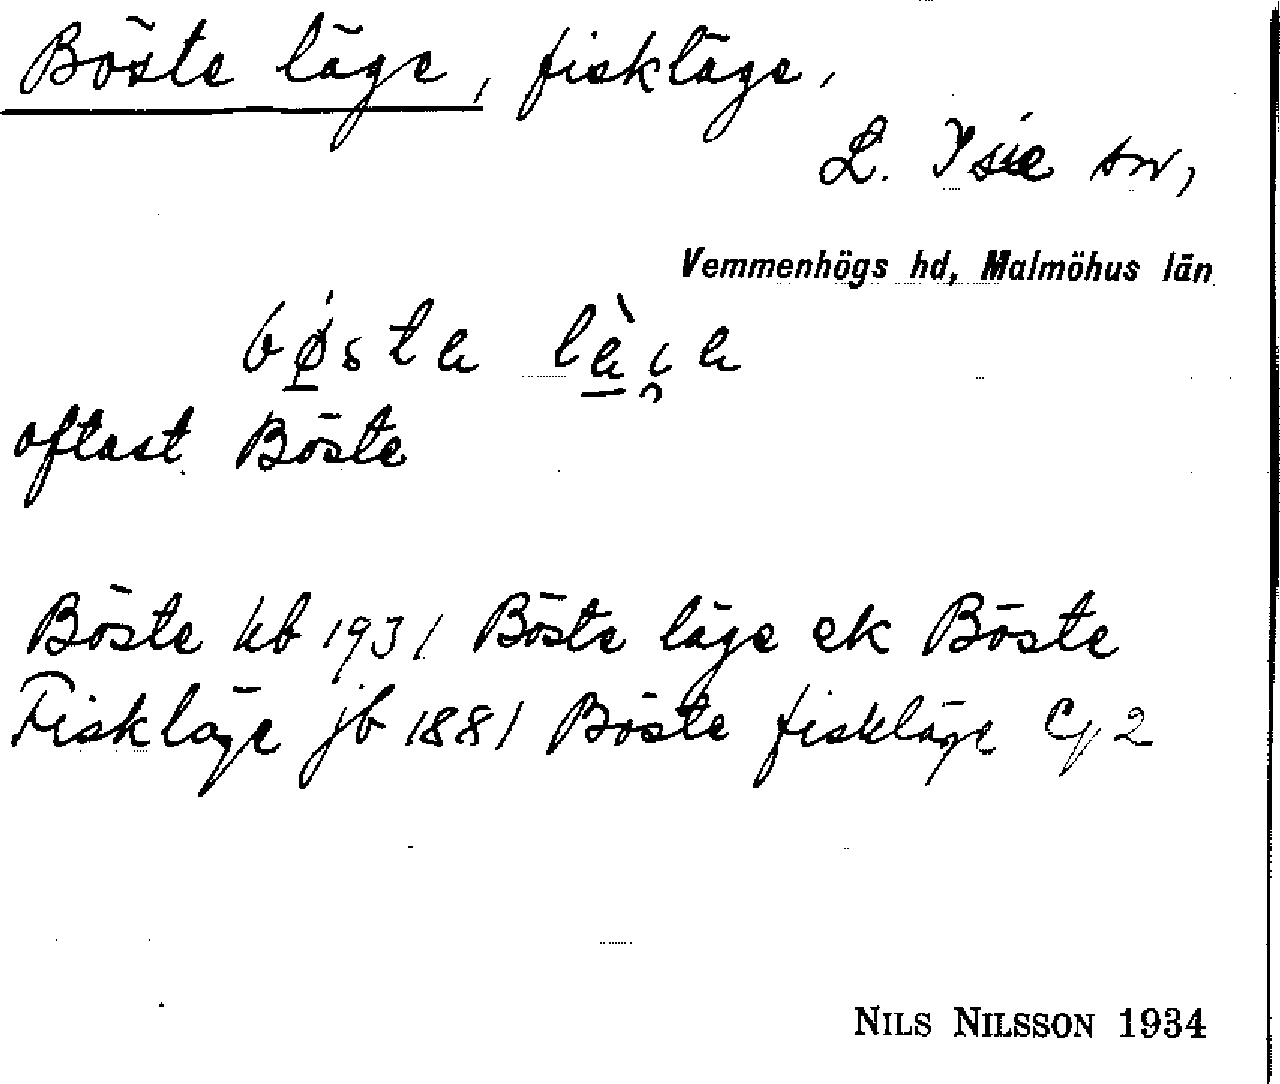 Böste läge, fiskläge,
L. Isie sn,
Vemmenhögs hd, Malmöhus län
oftast Böste
Böste hb 1931 Böste läge ek Böste
Fiskläge jb 1881 Böste fiskläge
NILS NILSSON 1934